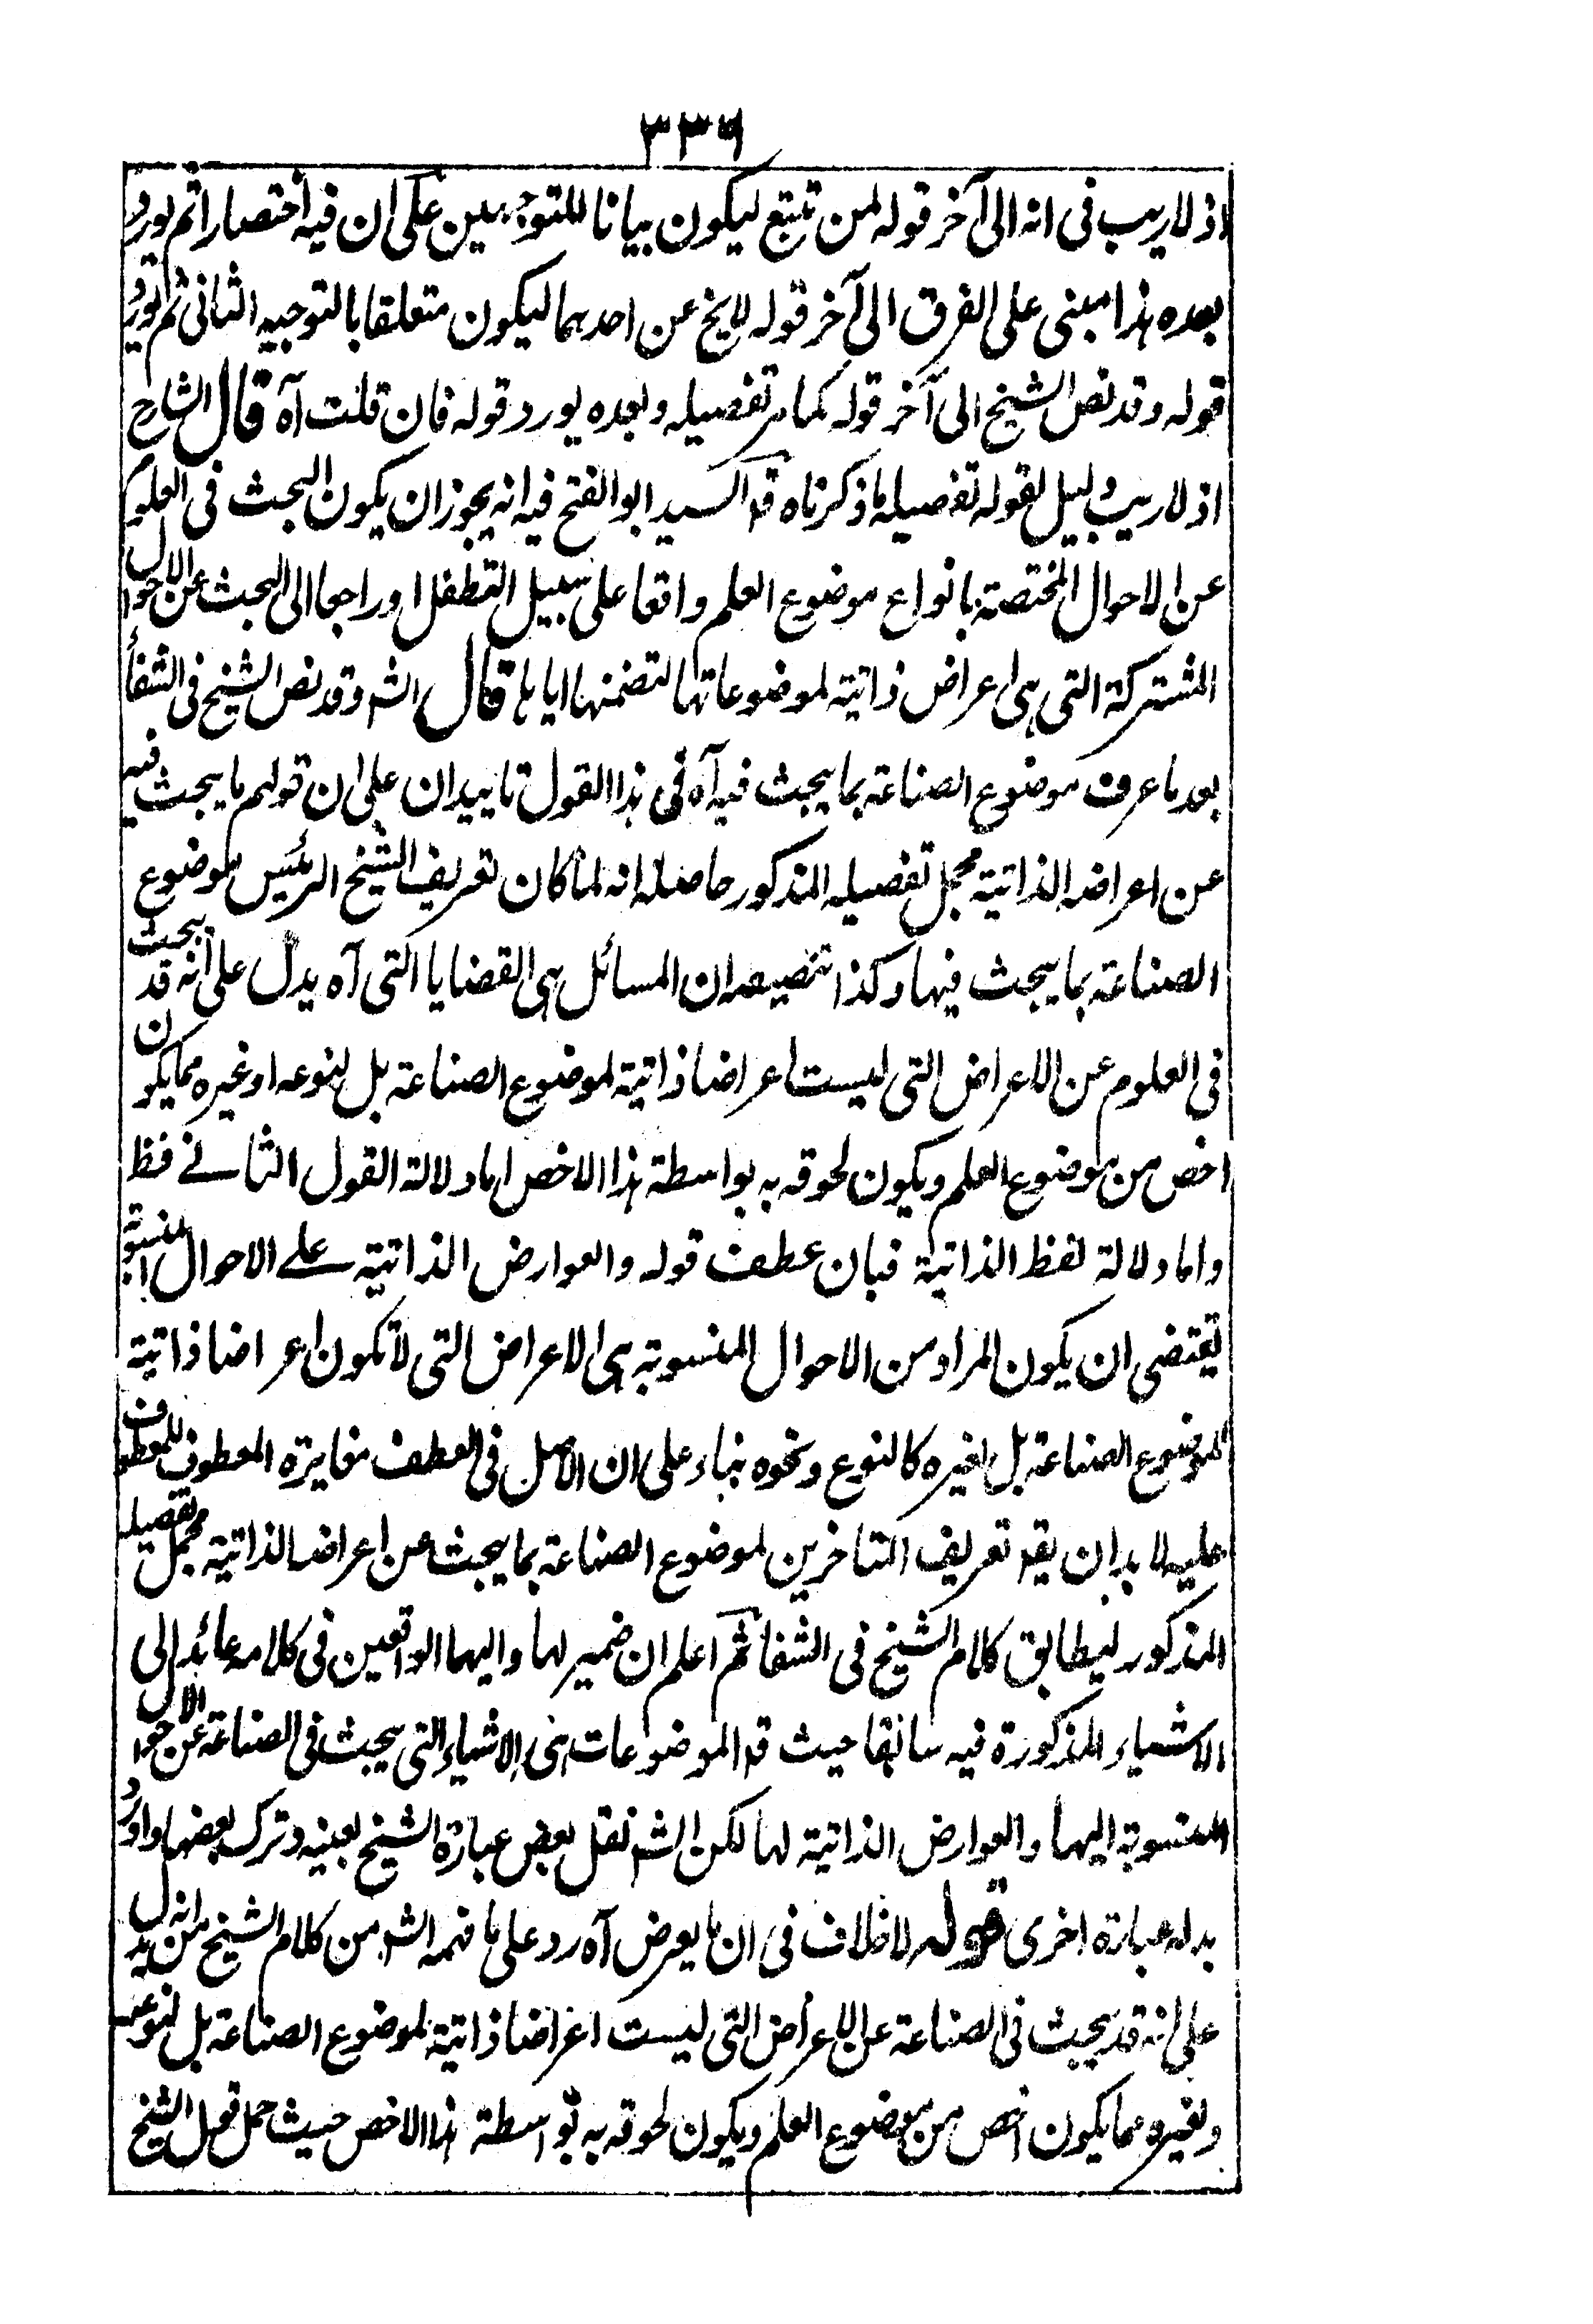 ٣٣٦
اذ لا ريب فى انه الى آخر قوله لمن تتبع ليكون بيانا للتوجيهين على ان فيه اختصارا ثم يورد
بعده هذا مبنى على الفرق الى آخر قوله لايخ عن احدهما ليكون متعلقا بالتوجيه الثانى ثم يورد
قوله وقد نص الشيخ الى آخر قوله كما مر تفصيله وبعده يورد قوله فان قلت آه قال الشارح
اذ لا ريب دليل لقوله تفصيله ما ذكرناه قد السيد ابو الفتح فيه انه يجوز ان يكون البحث فى العلوم
عن الاحوال المختصة بانواع موضوع العلم واقعا على سبيل التطفل او راجعا الى البحث عن الاحوال
المشتركة التى هى اعراض ذاتية لموضوعاتها لتضمنها اياها قال الشہ وقد نص الشيخ فى الشفأ
بعد ما عرف موضوع الصناعة بما يبحث فيه آه فى هذا القول تاييدان على ان قولهم ما يبحث فيه
عن اعراضه الذاتية مجمل تفصيله المذكور حاصله انه لما كان تعريف الشيخ الرئيس لموضوع
الصناعة بما يبحث فيها وكذا تنصيصه ان المسائل هى القضايا التى آه يدل على انه قد يبحث
فى العلوم عن الاعراض التى ليست اعراضا ذاتية لموضوع الصناعة بل لنوعه او غيره مما يكون
اخص من موضوع العلم ويكون لحوقه به بواسطة هذا الاخص اما دلالة القول الثانى فظ
واما دلالة لفظ الذاتية فبان عطف قوله والعوارض الذاتية على الاحوال المنسوبة
تقتضى ان يكون المراد من الاحوال المنسوبة هى الاعراض التى لا تكون اعراضا ذاتية
لموضوع الصناعة بل لغيره كالنوع ونحوه بناء على ان الاصل فى العطف مغايرة المعطوف للمعطوف
عليه لا بد ان يقہ تعريف المتاخرين لموضوع الصناعة بما يبحث عن اعراضه الذاتية مجمل تفصيله
المذكور ليطابق كلام الشيخ فى الشفا ثم اعلم ان ضمير لها واليها الواقعين فى كلامه عائد الى
الاشياء المذكورة فيه سابقا حيث قہ الموضوعات هى الاشياء التى يبحث فى الصناعة عن الاحوال
المنسوبة اليها والعوارض الذاتية لها لكن الشہ نقل بعض عبارة الشيخ بعينه وترك بعضها واورد
بدله عبارة اخرى قوله لا خلاف فى ان ما يعرض آه رد على ما فهمه الشہ من كلام الشيخ من انه يدل
على انه قد يبحث فى الصناعة عن الاعراض التى ليست اعراضا ذاتية لموضوع الصناعة بل لنوعه
ولغيره مما يكون اخص من موضوع العلم ويكون لحوقه به بواسطة هذا الاخص حيث حمل قول الشيخ